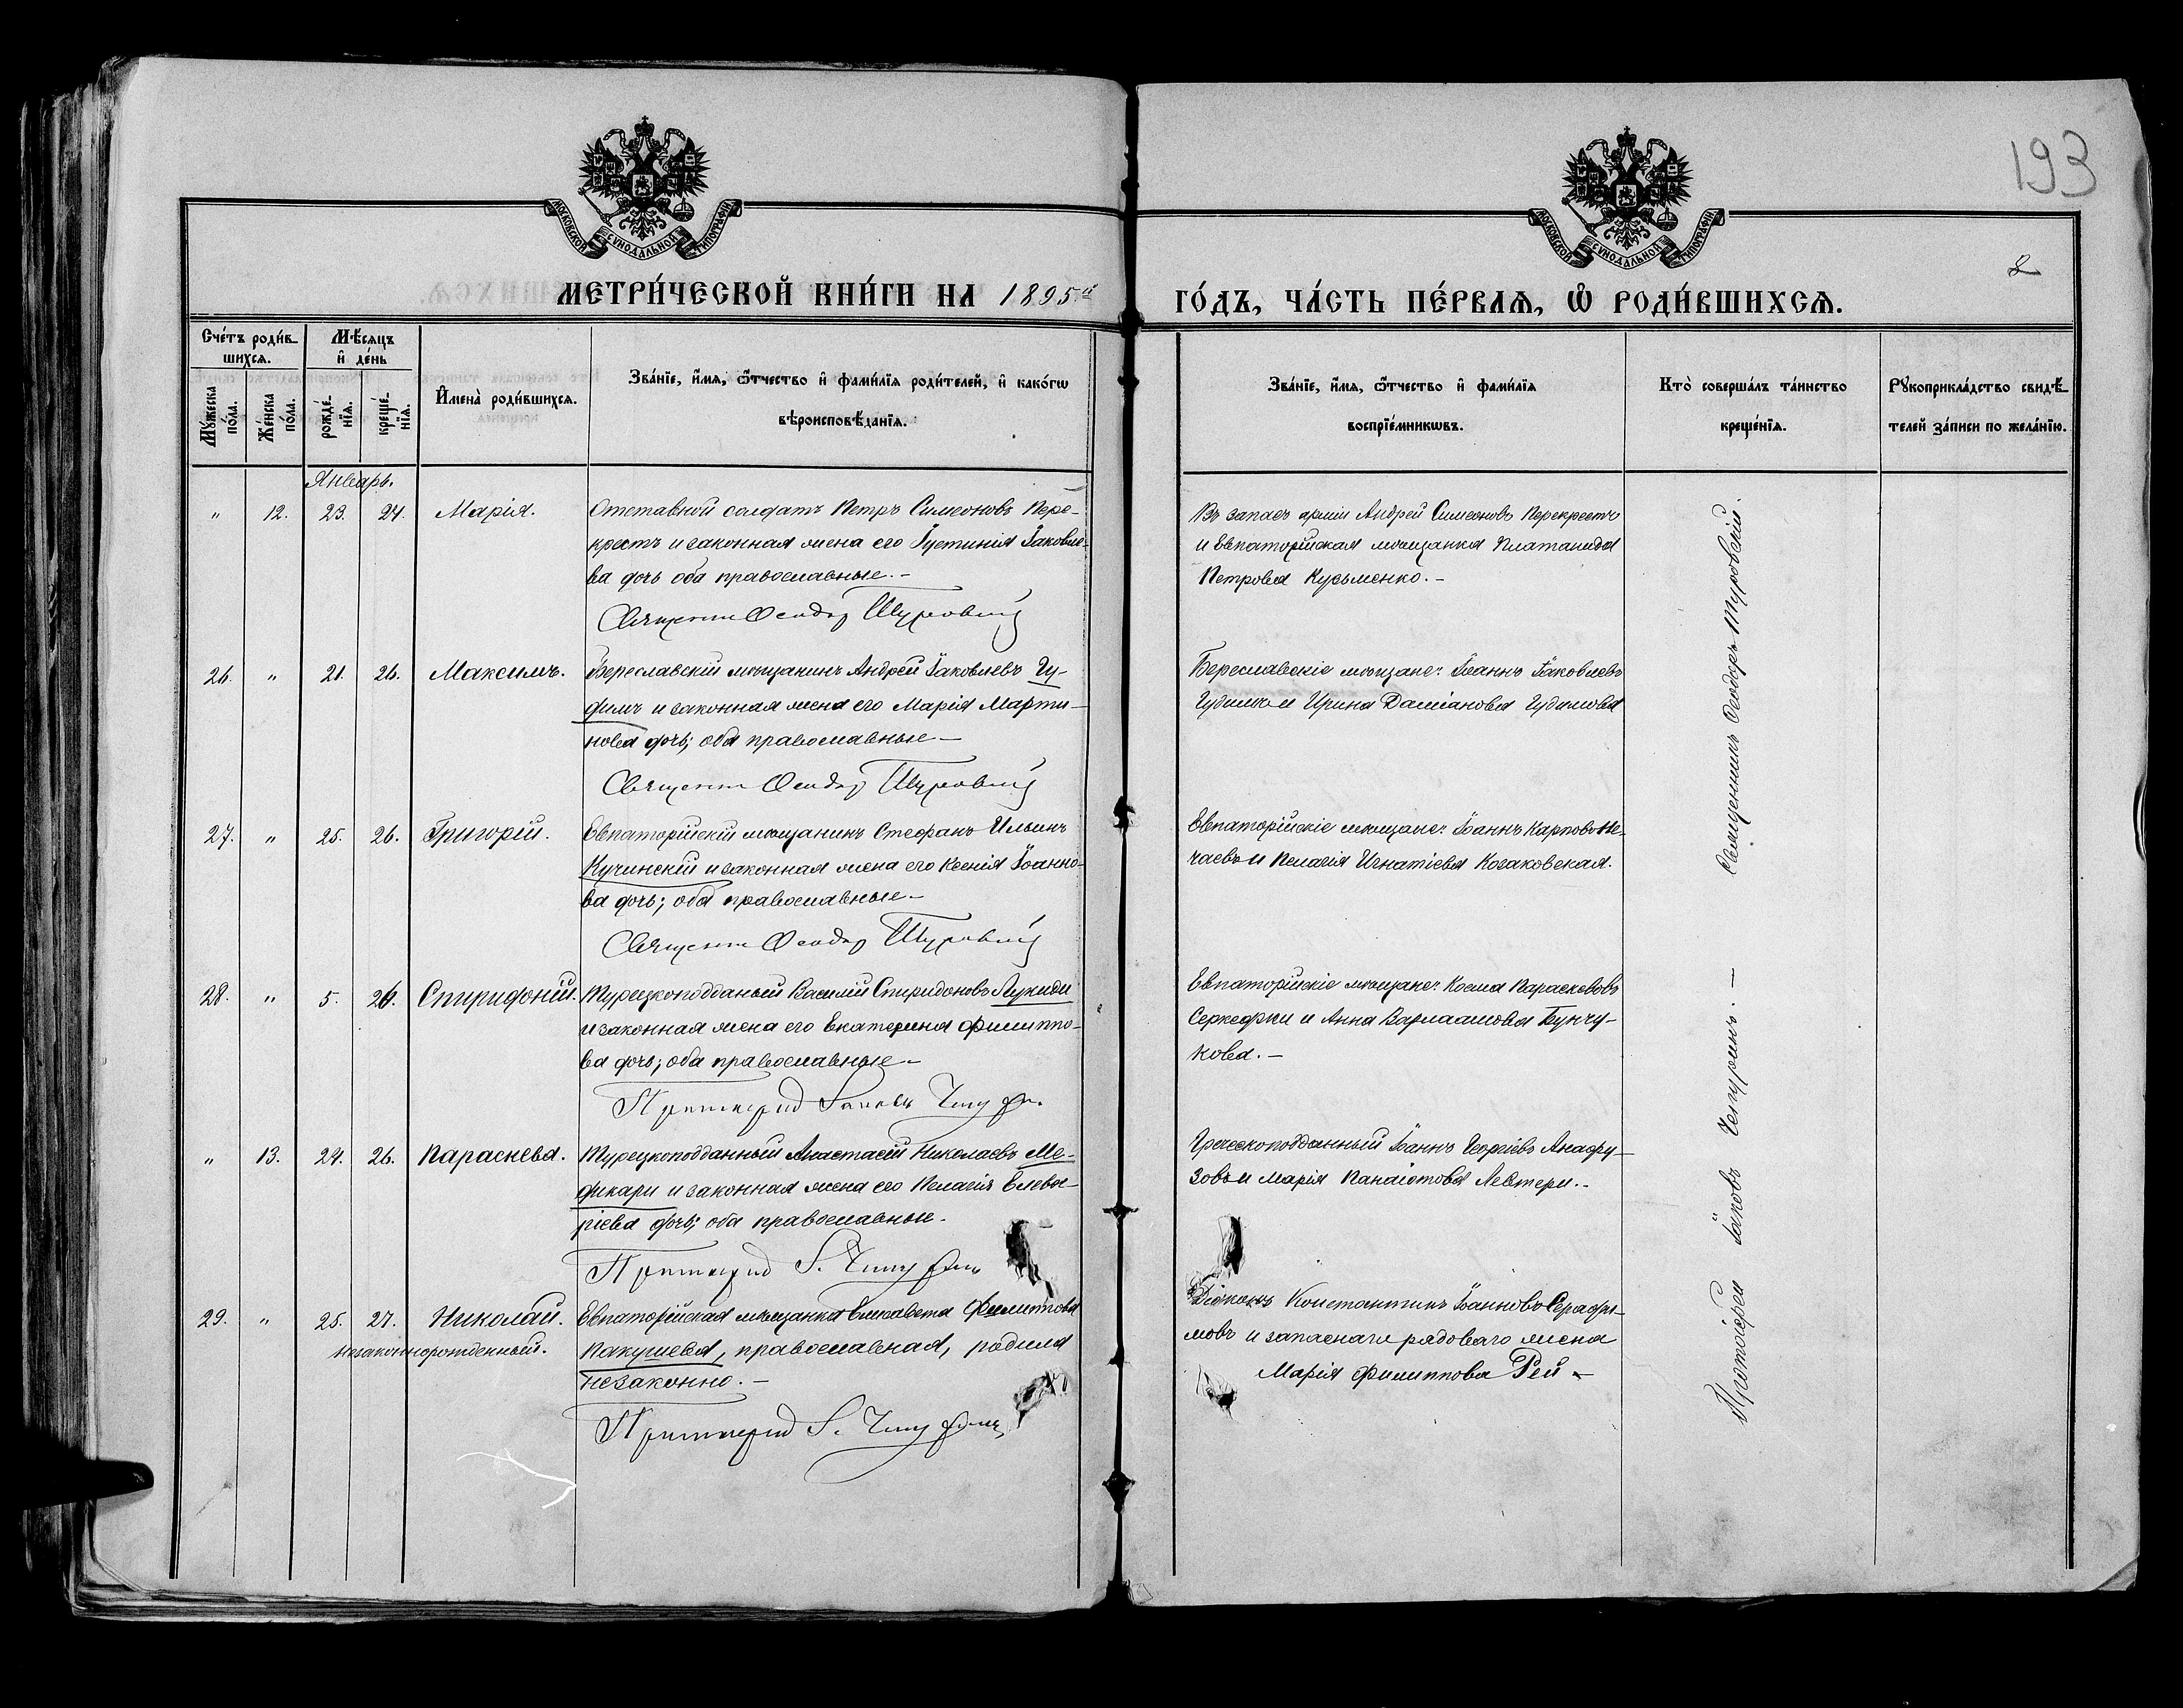 193
МОСКОВСКОЙ СУНОДАЛЬНОЙ ТИПОГРАФІИ
МОСКОВСКОЙ СУНОДАЛЬНОЙ ТИПОГРАФІИ
МЕТРИ́ЧЕСКОЙ КНИ́ГИ НА 1895й
ГО́ДЪ, ЧА́СТЬ ПЕ́РВАѦ, Ѡ РОДИ́ВШИХСѦ.
Сче́тъ роди́в-
шихсѧ.
Мѣ́сѧцъ
и де́нь
Мꙋ́жеска по́ла.
Же́нска по́ла.
рожде́-нїѧ.
креще́-нїѧ.
Имена̀ роди́вшихсѧ.
Зва́нїе, и́мѧ, ѻ́тчество и фами́лїѧ роди́телей, и како́гѡ
вѣроисповѣ́данїѧ.
Зва́нїе, и́мѧ, ѻ́тчество и фами́лїѧ
воспрїе́мникѡвъ.
Кто̀ соверша́лъ та́инство
креще́нїѧ.
Рꙋкоприкла́дство свидѣ́-
телей за́писи по жела́нїю.
Январь.
" 12. 23. 24. Марія.
Отставной солдатъ Петръ Симеоновъ Пере-
крестъ и законная жена его Іустинія Іаковле-
ва дочь оба православные.-
Священн Феодор Туровский
Въ запасъ арміи Андрей Симеоновъ Перекрестъ
и Евпаторійская мѣщанка Платанида
Петрова Кузьменко.-
26. " 21. 26. Максимъ.
Береславскій мѣщанинъ Андрей Іаковлевъ Чу-
димъ и законная жена его Марія Марти-
нова дочь; оба православные-
Священн Феодор Туровский
Береславскіе мѣщане: Іоаннъ Іаковлевъ
Чудимъ и Ирина Даміанова Чудимова
27. " 25. 26. Григорій.
Евпаторійскій мѣщанинъ Стефанъ Ильинъ
Кучинскій и законная жена его Ксенія Іоанно-
ва дочь; оба православные-
Священн Феодор Туровский
Евпаторійскіе мѣщане: Іоаннъ Карповъ Не-
чаевъ и Пелагія Игнатіева Козаковская.
28. " 5. 26. Спиридоній.
Турецкоподданый Василій Спиридоновъ Лукиди
и законная жена его Екатерина Филиппо-
ва дочь; оба православные-
Протоиерей Іаковъ Чепурин
Евпаторійскіе мѣщане: Косма Параскововъ
и Анна Варлаамова Бунчу-
кова.-
" 13. 24. 26. Параскева.
Турецкоподданный Анастасій Николаевъ Ме-
дикари и законная жена его Пелагія Елевѳе-
ріева дочь; оба православные.
Протоиерей І. Чепуринъ
Греческоподданный Іоаннъ Георгіевъ Анафу-
зовъ и Марія Панаіотова Левтери.-
29. " 25. 27. Николай.
незаконнорожденный.
Евпаторійская мѣщанка Елисавета Филиппова
Какушева, православная, родила
незаконно.-
Протоиерей І. Чепуринъ
Діаконъ Константинъ Іоанновъ Серафи-
мовъ и запаснаго рядоваго жена
Марія Филиппова Рей-
Священникъ Ѳеодоръ Туровскій.
Протоіерей Іаковъ Чепуринъ.-